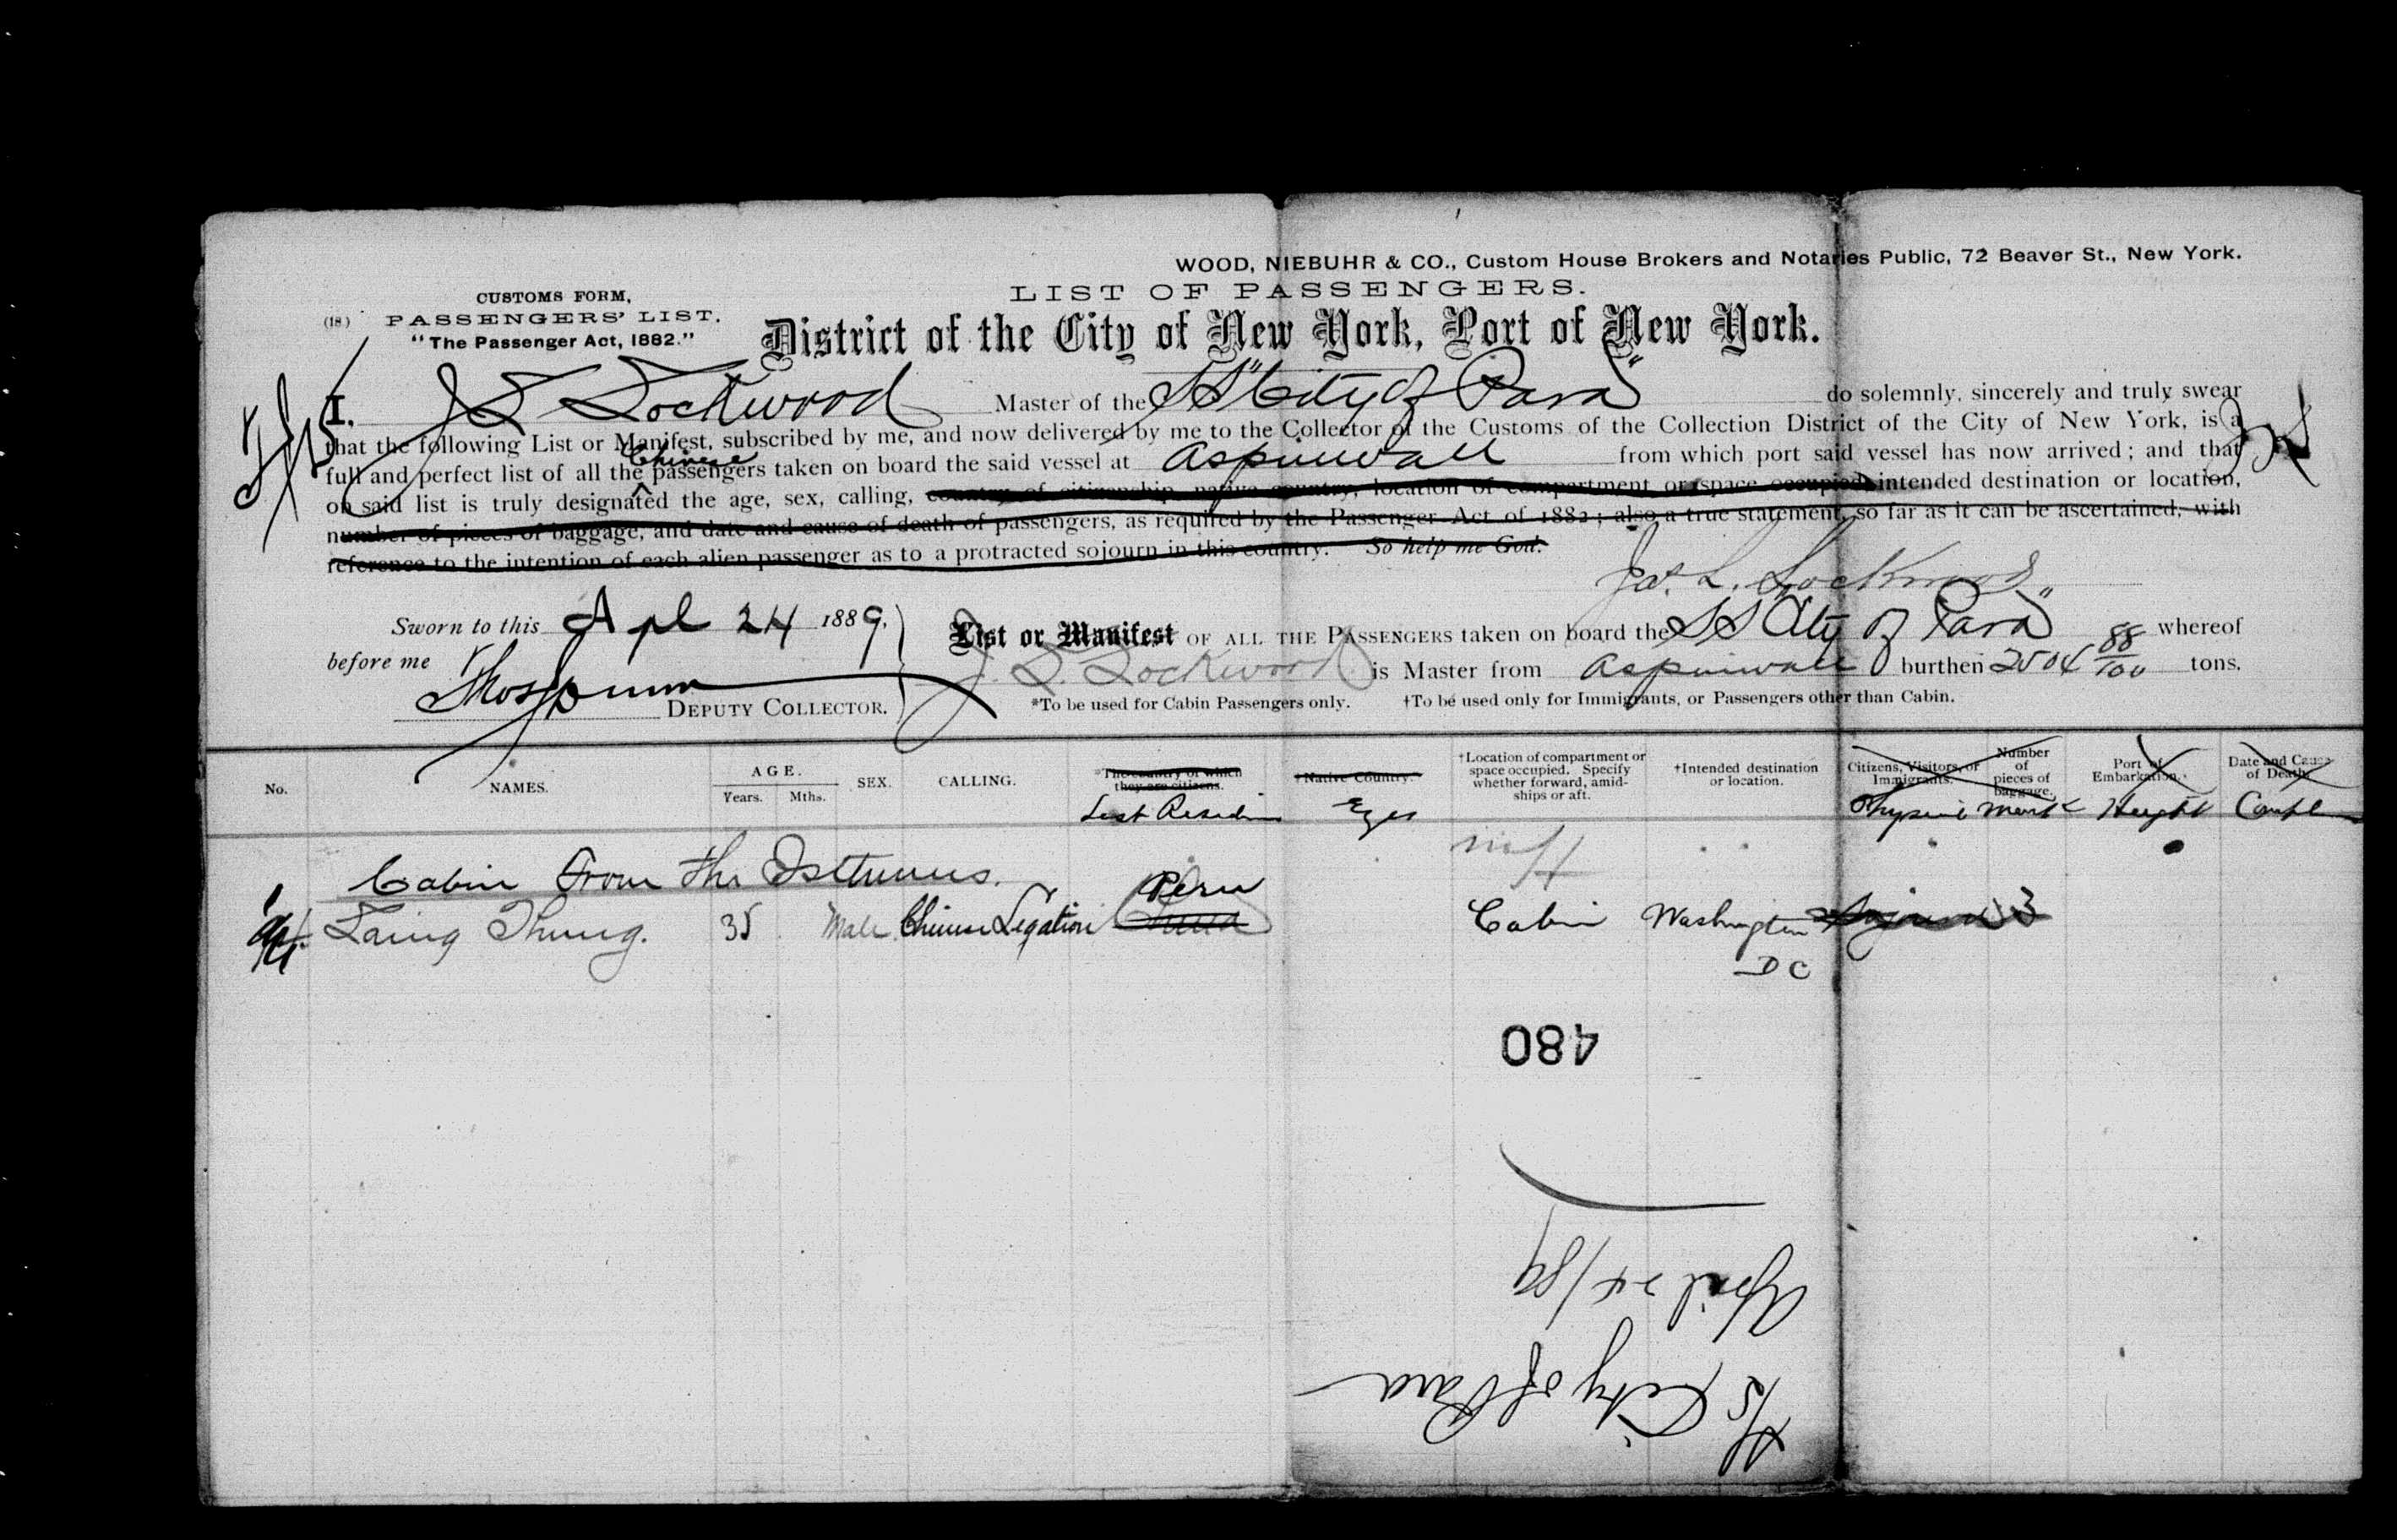 WOOD, NIEBUHR & CO., Custom House Brokers and Notaries Public, 72 Beaver St., New York.
LIST OF PASSENGERS.
CUSTOMS FORM,
(18) PASSENGERS' LIST.
"The Passenger Act, 1882."
District of the City of New York, Port of New York.
I, J L Lockwood Master of the SS "City of Para" do solemnly, sincerely and truly swear
that the following List or Manifest, subscribed by me, and now delivered by me to the Collector of the Customs of the Collection District of the City of New York, is a
full and perfect list of all the Chinese passengers taken on board the said vessel at Aspinwall from which port said vessel has now arrived; and that
on said list is truly designated the age, sex, calling, country of citizenship, native country, location of compartment or space occupied, intended destination or location,
number of pieces of baggage, and date and cause of death of passengers, as required by the Passenger Act of 1882; also a true statement, so far as it can be ascertained, with
reference to the intention of each alien passenger as to a protracted sojourn in this country. So help me God.
Jas. L. Lockwood
Sworn to this Apl 24 1889,
before me
DEPUTY COLLECTOR.
List or Manifest OF ALL THE PASSENGERS taken on board the SS City of Para" whereof
J. L. Lockwood is Master from Aspinwall burthen 2504 88/100 tons.
*To be used for Cabin Passengers only. †To be used only for Immigrants, or Passengers other than Cabin.
No. NAMES. AGE. Years. Mths. SEX. CALLING. *The country of which they are citizens. Last Residen Native Country. Eyes †Location of compartment or space occupied. Specify whether forward, amidships or aft. †Intended destination or location. Citizens, Visitors, or Immigrants. Number of pieces of baggage. Port of Embarkation. Date and Cause of Death.
Physical Marks Height Compl
Cabin From the Isthmus.
Laing Thung. 35 Male Chinese Legation Peru China Cabin Washington
D C
480
April 24/89
S/S City of Para